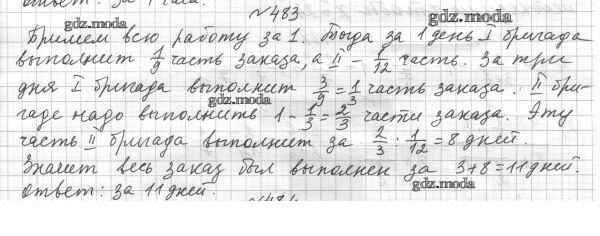 Ответ: за 1 час.
№483
gdz.moda
Примем всю работу за 1. Тогда за 1 день I бригада
выполнит 1/9 часть заказа, а II – 1/12 часть. За три
gdz.moda
дня I бригада выполнит 3/9 = 1/3 часть заказа. II бри-
gdz.moda
гаде надо выполнить 1 - 1/3 = 2/3 части заказа. Эту
часть II бригада выполнит за 2/3 : 1/12 = 8 дней.
gdz.moda
Значит весь заказ был выполнен за 3+8=11 дней.
gdz.moda
Ответ: за 11 дней.
№484